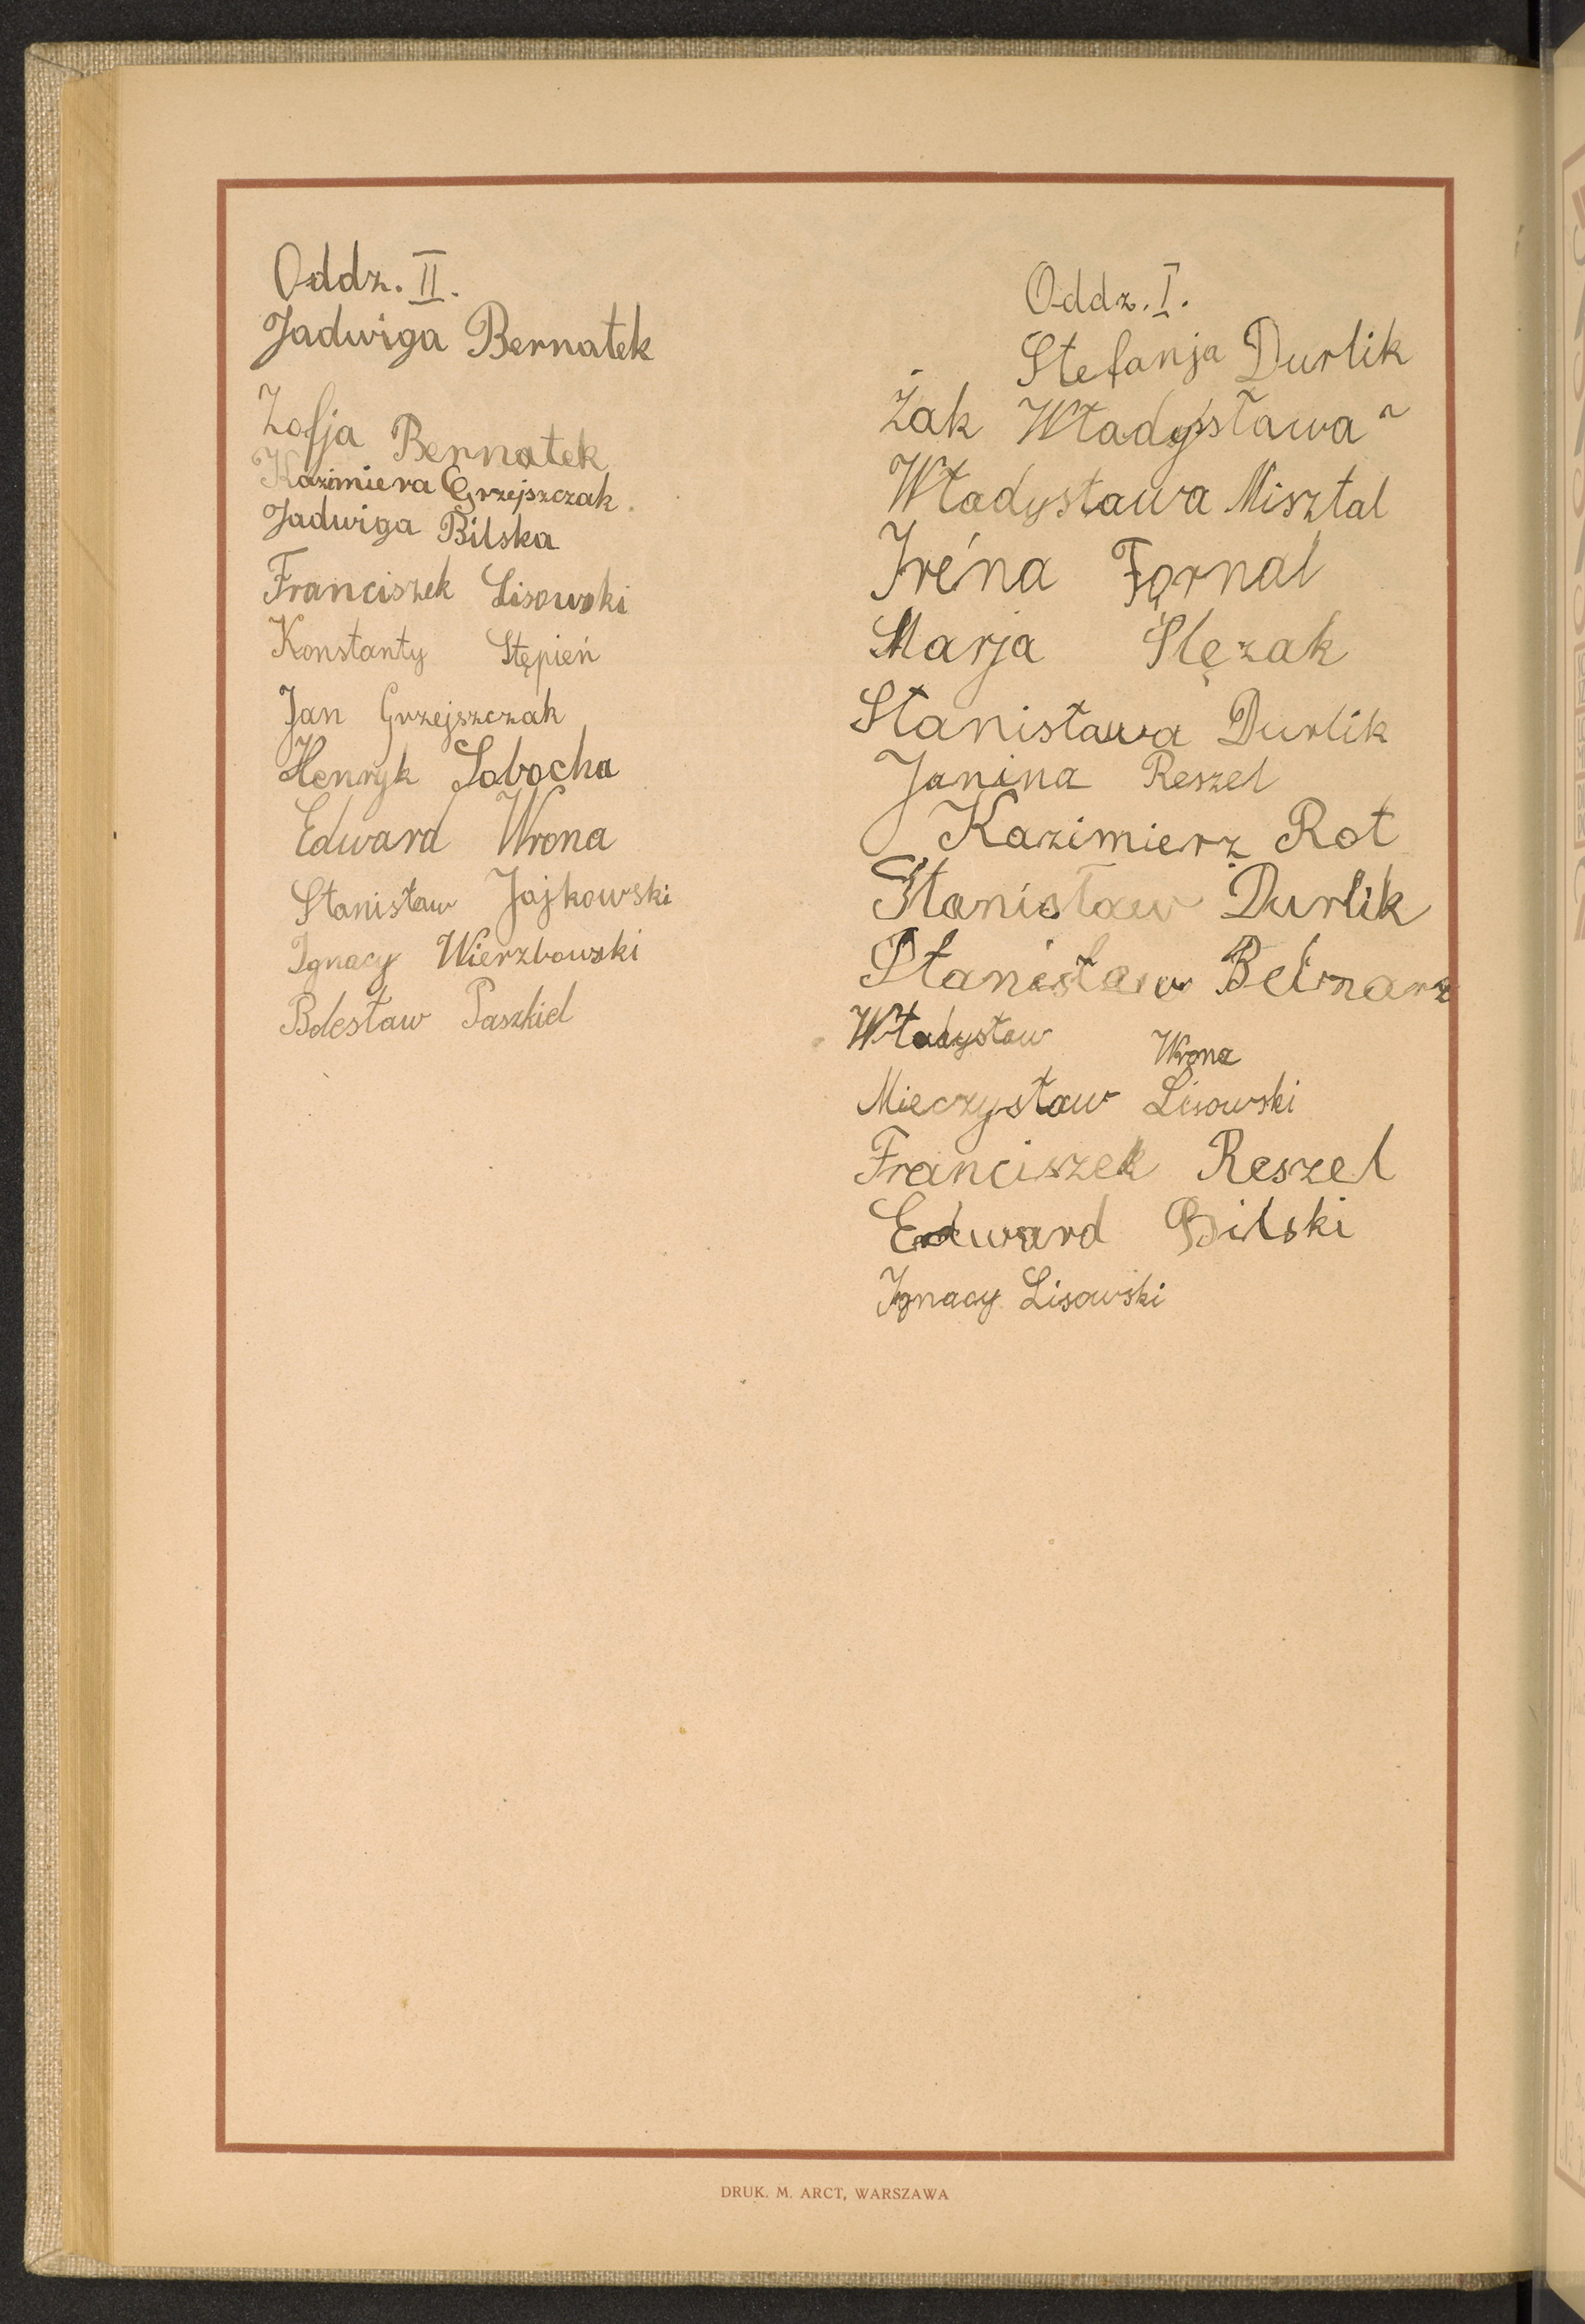 Oddz. II.
Jadwiga Bernatek
Zofja Bernatek
Kazimiera Grzejszczak.
Jadwiga Bilska
Franciszek Lisowski
Konstanty Stępień
Jan Grzejszczak
Henryk Sobocha
Edward Wrona
Stanisław Jajkowski
Ignacy Wierzbowski
Bolesław Paszkiel
Oddz. I.
Stefanja Durlik
Żak Władysława
Władysława Misztal
Iréna Fornal
Marja Ślęzak
Stanisława Durlik
Janina Reszel
Kazimierz Rot
Stanisław Durlik
Stanisław Betnarz
Władysław Wrona
Mieczysław Lisowski
Franciszek Reszel
Edward Bilski
Ignacy Lisowski
DRUK. M. ARCT, WARSZAWA